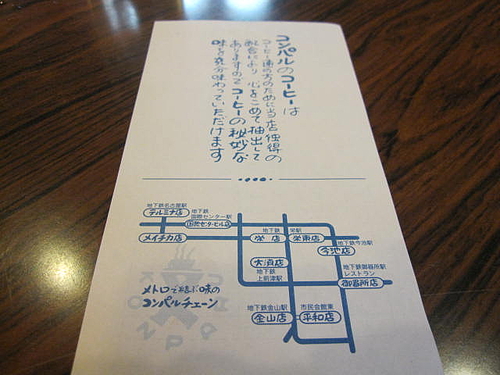 コンパルのコーヒーは
コーヒー通の方のために当店独得の
配合により心をこめて抽出して
ありますのでコーヒーの秘妙な
味を充分味わっていただけます
地下鉄名古屋駅
テルミナ店
地下鉄
国際センター駅
国際センタービル店
メイチカ店
地下鉄
栄店
栄駅
栄東店
地下鉄今池駅
今池店
大須店
地下鉄
上前津駅
地下鉄御器所駅
レストラン
御器所店
メトロで結ぶ味の
コンパルチェーン
地下鉄金山駅
金山店
市民会館東
平和店